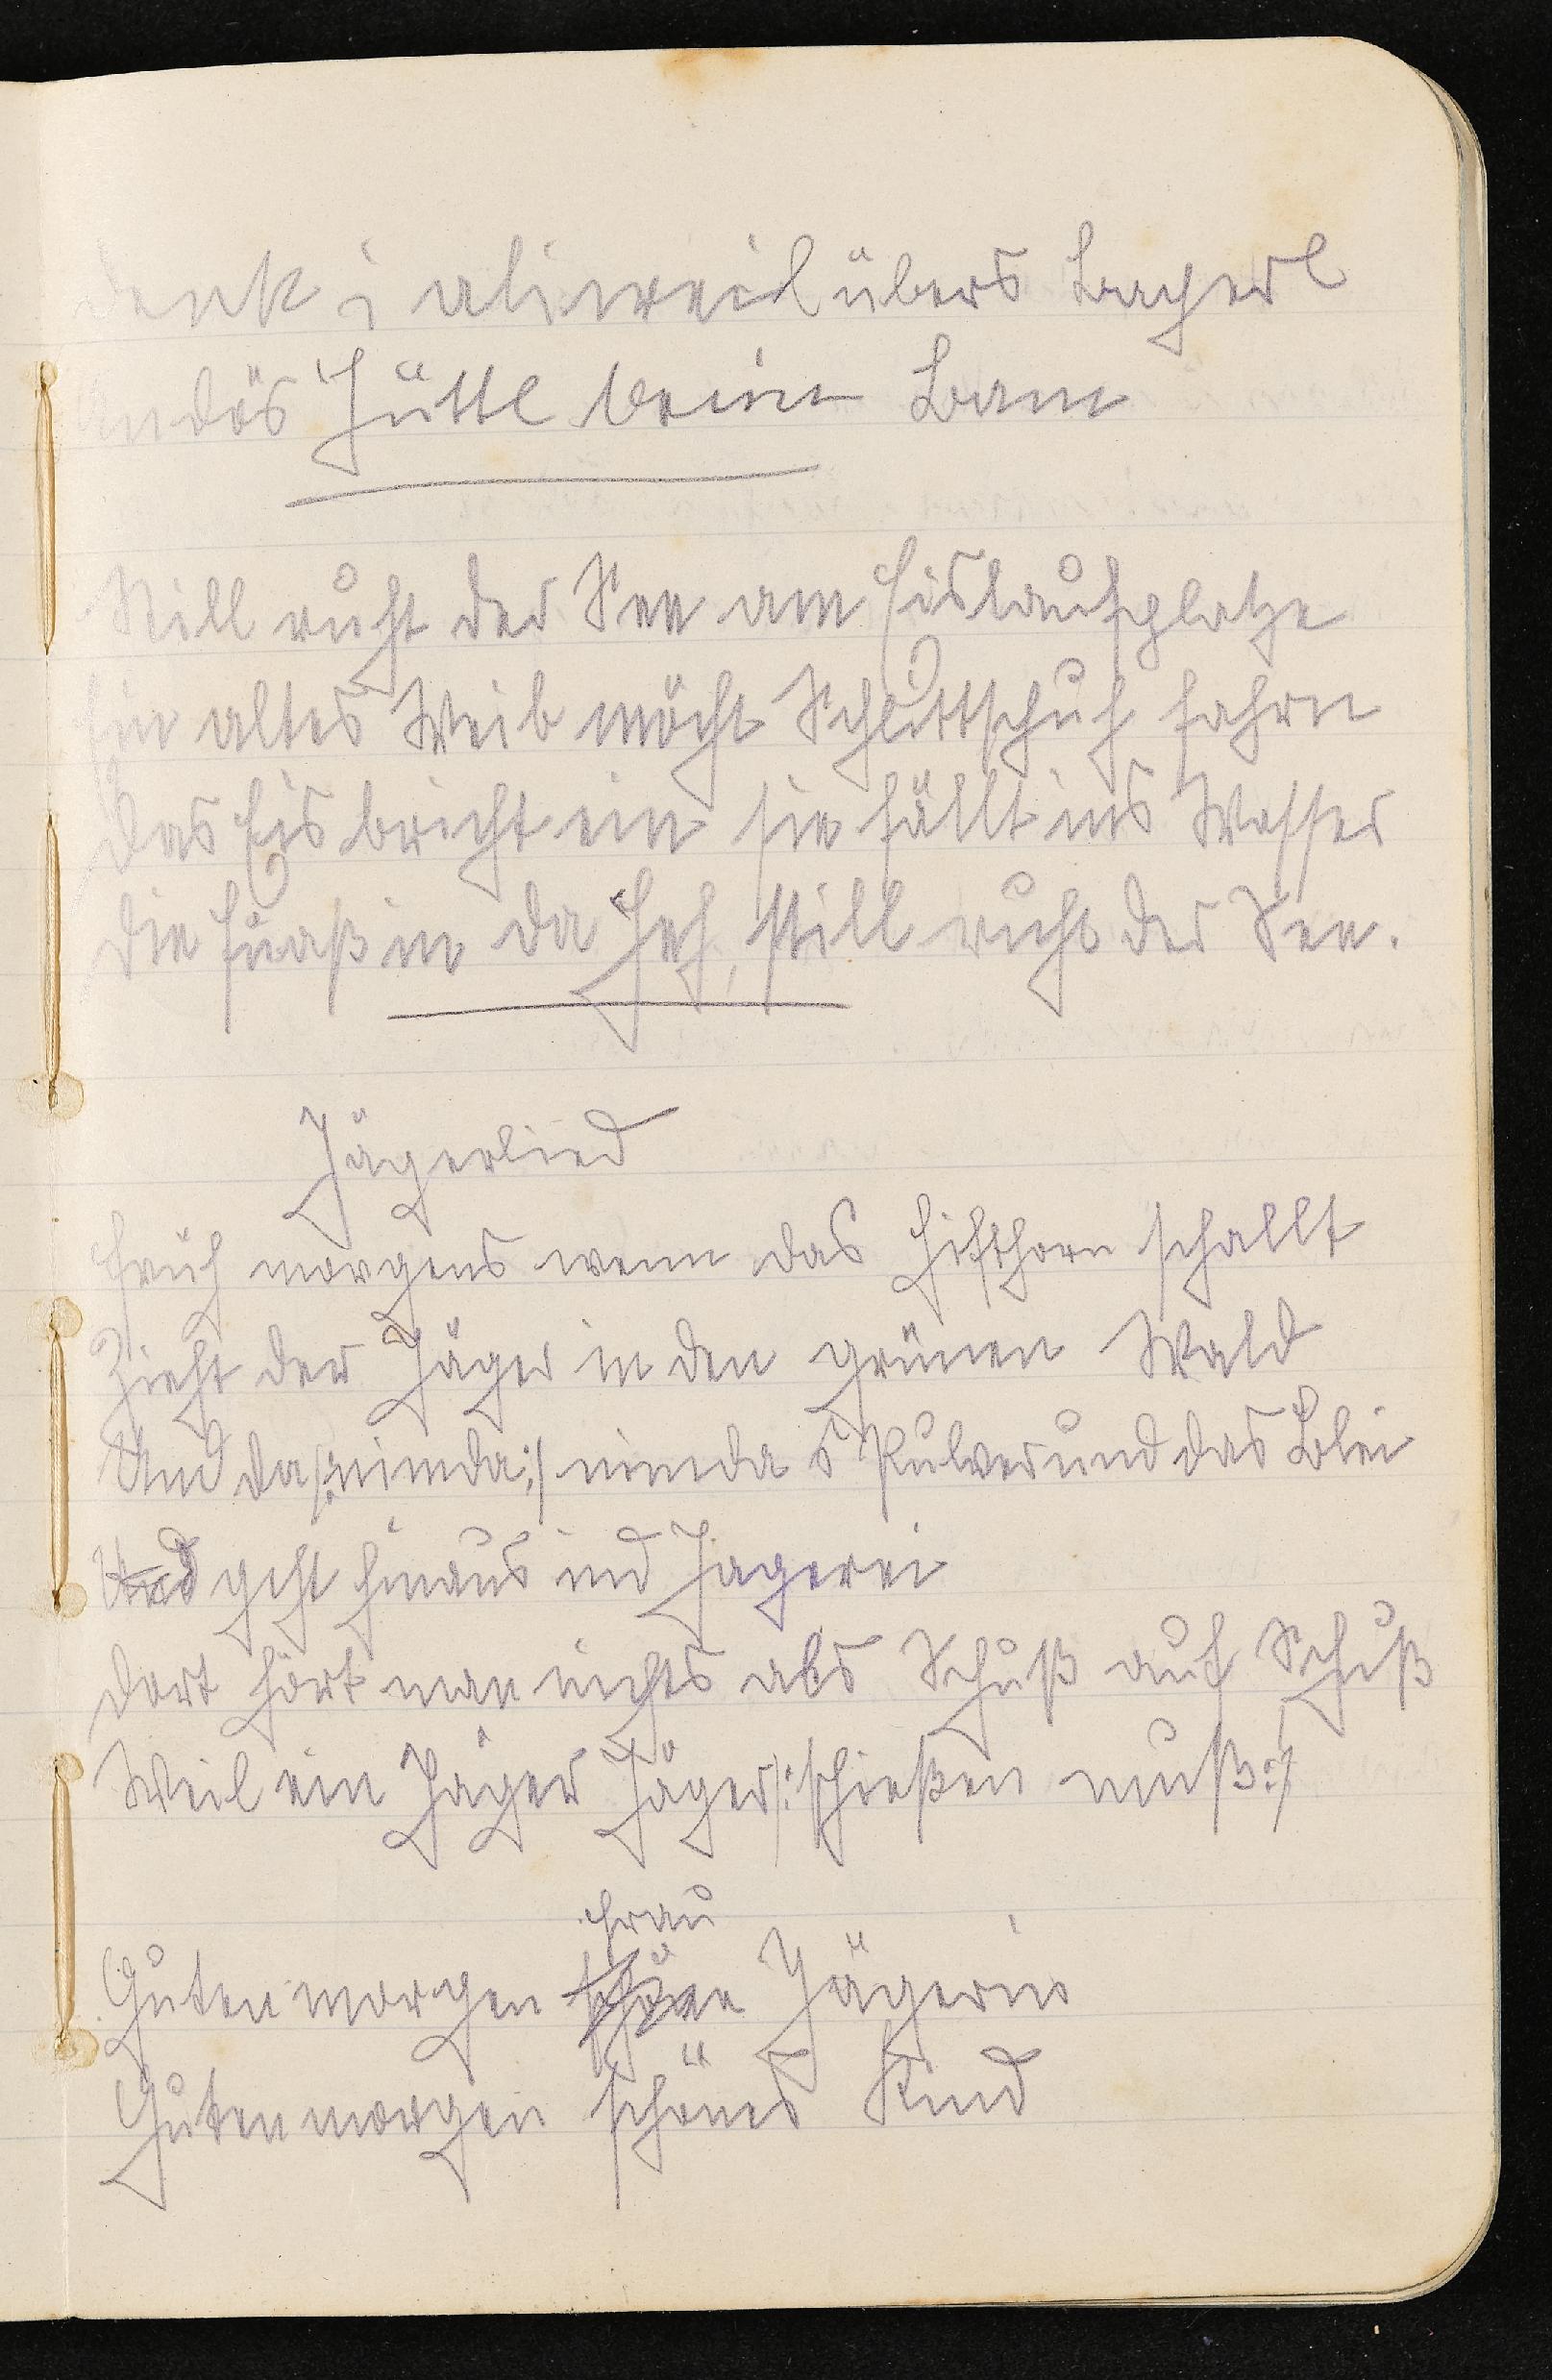 denk i aliweil übers Bacherl
An dös Hüttl beim Bam
Still ruht der See am Eislaufplatze
Ein altes Weib möcht Schlittschuh fahrn
Das Eis bricht ein sie fällt ins Wasser
die Füaß in da Heh, still ruht der See.
Jägerlied
Früh morgens wenn das Hifthorn schallt
Zieht der Jäger in den grünen Wald
Und da /: nimda :/ nimda s Pulver und das Blei
Und geht hinaus ind Jagerei
dort hört man nichts als Schuß auf Schuß
Weil ein Jäger Jäger /: schießen muß :/
Frau
Guten morgen schöne Jägerin
Guten morgen schönes Kind